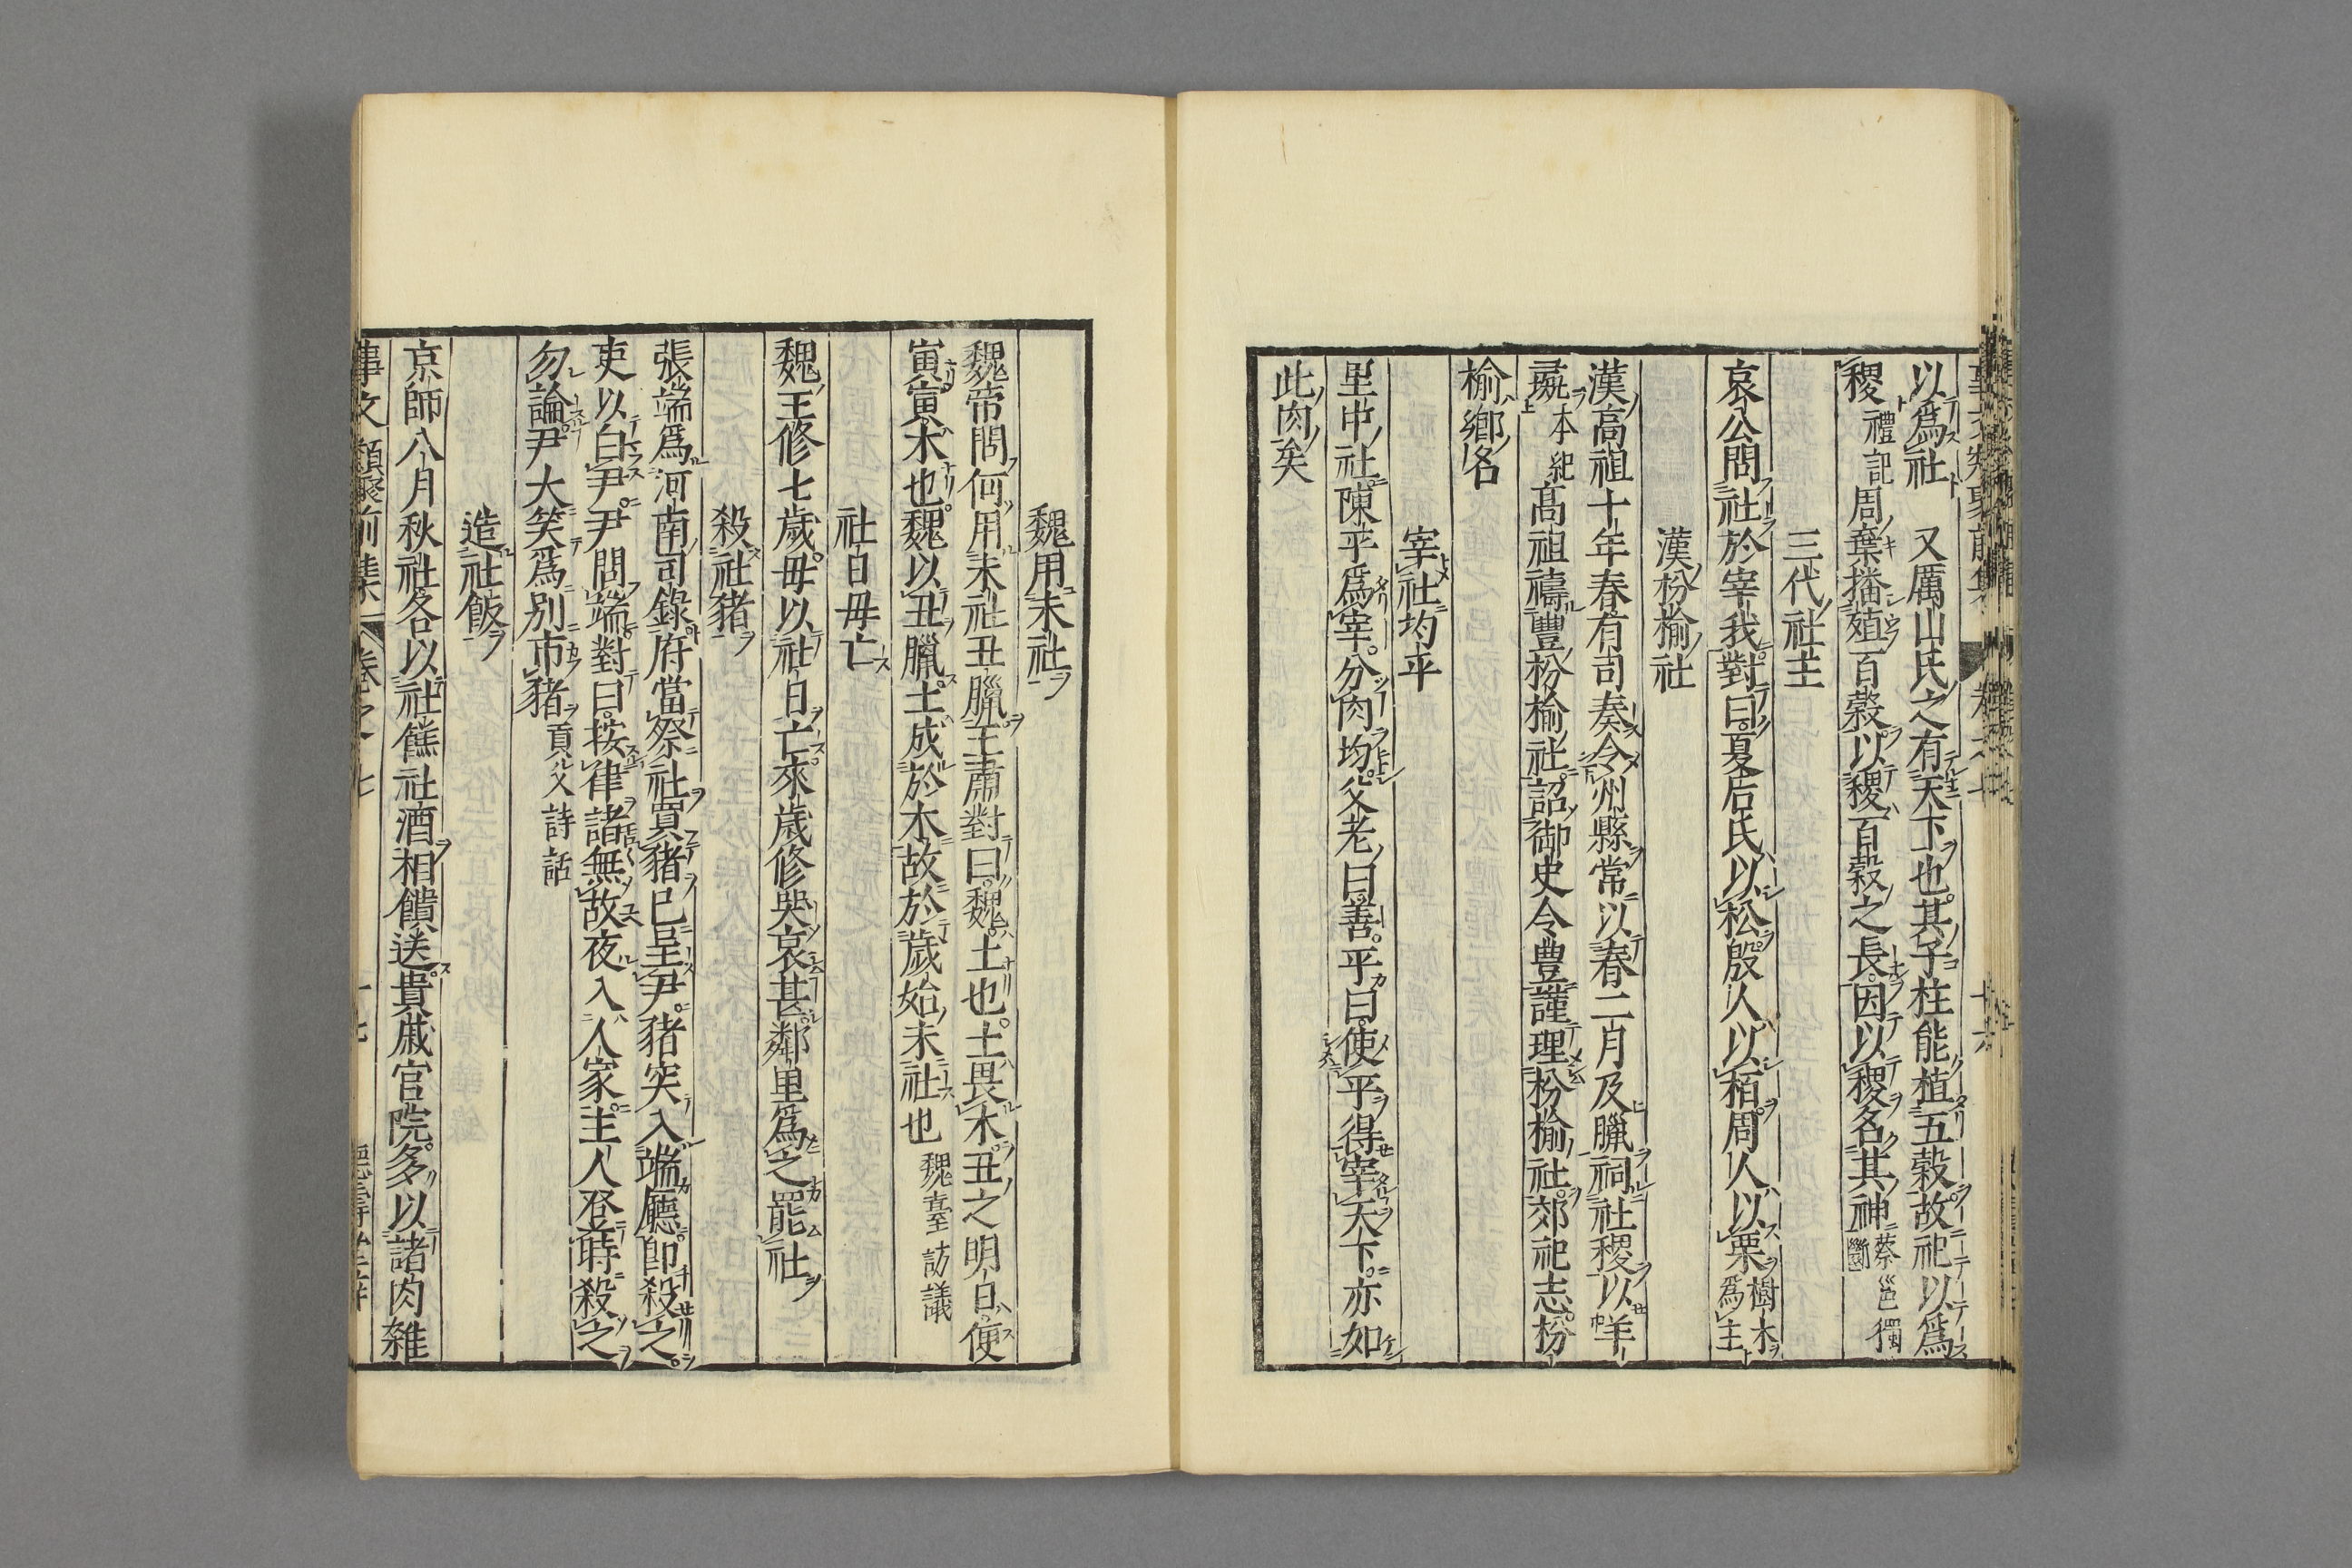 以爲社　又厲山氏之有天下也其子柱能植五穀故祀以爲
稷禮記周棄播殖百穀以稷百穀之長因以稷名其神蔡邕獨斷
三代社主
哀公問社於宰我對曰夏后氏以松殷人以栢周人以栗樹木爲主
漢枌榆社
漢高祖十年春有司奏令州縣常以春二月及臘祠社稷以羊
彘本紀高祖禱豐枌榆社詔御史令豊謹理枌榆社郊祀志枌
榆鄉名
宰社均平
里中社陳平爲宰分肉均父老曰善平曰使平得宰天下亦如
此肉矣
魏用未社
魏帝問何用未社丑臘王肅對曰魏土也土畏木丑之明日便
寅寅木也魏以丑臘土成於木故於歲始未社也魏臺訪議
社日母亡
魏王修七歲母以社日亡來歲修哭哀甚鄰里爲之罷社
殺社猪
張端爲河南司錄府當祭社買猪已呈尹猪突入端廳即殺之
吏以白尹尹問端對曰按律諸無故夜入人家主人登時殺之
勿論尹大笑爲別市猪貢父詩話
造社飯
京師八月秋社各以社餻社酒相饋送貴戚官院多以諸肉雜
事文類聚前集　卷之七